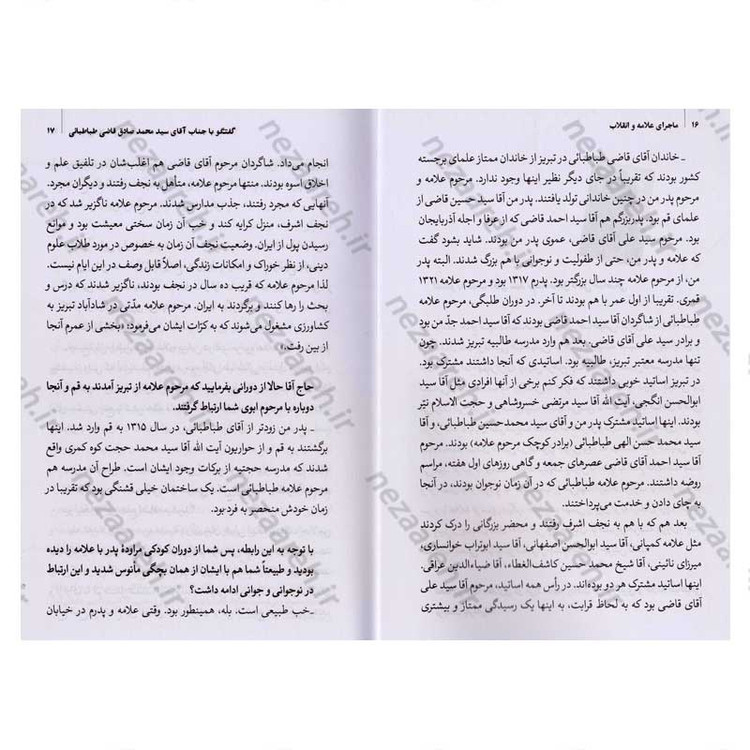 ۱۶ ماجرای علامه و انقلاب
ـ خاندان آقای قاضی طباطبائی در تبریز از خاندان ممتاز علمای برجسته
کشور بودند که تقریباً در جای دیگر نظیر اینها وجود ندارد. مرحوم علامه و
مرحوم پدر من در چنین خاندانی تولد یافتند. پدر من آقا سید حسین قاضی از
علمای قم بود. پدربزرگم هم آقا سید احمد قاضی که از عرفا و اجله آذربایجان
بود. مرحوم سید علی آقای قاضی، عموی پدر من بودند. شاید بشود گفت
که علامه و پدر من، حتی از طفولیت و نوجوانی با هم بزرگ شدند. البته پدر
من، از مرحوم علامه چند سال بزرگتر بود. پدرم ۱۳۱۷ بود و مرحوم علامه ۱۳۲۱
قمری. تقریبا از اول عمر با هم بودند تا آخر. در دوران طلبگی، مرحوم علامه
طباطبائی از شاگردان آقا سید احمد قاضی بودند که آقا سید احمد جدّ من بود
و برادر سید علی آقای قاضی. بعد هم وارد مدرسه طالبیه تبریز شدند. چون
تنها مدرسه معتبر تبریز، طالبیه بود. اساتیدی که آنجا داشتند مشترک بود.
در تبریز اساتید خوبی داشتند که فکر کنم برخی از آنها افرادی مثل آقا سید
ابوالحسن انگجی، آیت الله آقا سید مرتضی خسروشاهی و حجت الاسلام نیّر
بودند. اینها اساتید مشترک پدر من و آقای سید محمدحسین طباطبائی، و آقا
سید محمد حسن الهی طباطبائی (برادر کوچک مرحوم علامه) بودند. مرحوم
آقا سید احمد آقای قاضی عصرهای جمعه و گاهی روزهای اول هفته، مراسم
روضه داشتند. مرحوم علامه طباطبائی که در آن زمان نوجوان بودند، در آنجا
به چای دادن و خدمت می‌پرداختند.
بعد هم که با هم به نجف اشرف رفتند و محضر بزرگانی را درک کردند
مثل علامه کمپانی، آقا سید ابوالحسن اصفهانی، آقا سید ابوتراب خوانساری،
میرزای نائینی، آقا شیخ محمد حسین کاشف‌الغطاء، آقا ضیاءالدین عراقی.
اینها اساتید مشترک هر دو بوده‌اند. در رأس همه اساتید، مرحوم آقا سید علی
آقای قاضی بود که به لحاظ قرابت، به اینها یک رسیدگی ممتاز و بیشتری
گفتگو با جناب آقای سید محمد صادق قاضی طباطبائی ۱۷
انجام می‌داد. شاگردان مرحوم آقای قاضی هم اغلب‌شان در تلفیق علم و
اخلاق اسوه بودند. منتها مرحوم علامه، متأهل به نجف رفتند و دیگران مجرد.
آنهایی که مجرد رفتند، جذب مدارس شدند. مرحوم علامه ناگزیر شد که در
نجف اشرف، منزل کرایه کند و خب آن زمان سختی معیشت بود و موانع
رسیدن پول از ایران. وضعیت نجف آن زمان به خصوص در مورد طلاب علوم
دینی، از نظر خوراک و امکانات زندگی، اصلاً قابل وصف در این ایام نیست.
لذا مرحوم علامه که قریب ده سال در نجف بودند، ناگزیر شدند که درس و
بحث را رها کنند و برگردند به ایران. مرحوم علامه مدّتی در شادآباد تبریز به
کشاورزی مشغول می‌شوند که به کرّات ایشان می‌فرمود: «بخشی از عمرم آنجا
از بین رفت.»
حاج آقا حالا از دورانی بفرمایید که مرحوم علامه از تبریز آمدند به قم و آنجا
دوباره با مرحوم ابوی شما ارتباط گرفتند.
ـ پدر من زودتر از آقای طباطبائی، در سال ۱۳۱۵ به قم وارد شد. اینها
برگشتند به قم و از حواریون آیت الله آقا سید محمد حجت کوه کمری واقع
شدند که مدرسه حجتیه از برکات وجود ایشان است. طراح آن مدرسه هم
مرحوم علامه طباطبائی است. یک ساختمان خیلی قشنگی بود که تقریبا در
زمان خودش منحصر به فرد بود.
با توجه به این رابطه، پس شما از دوران کودکی مراودهٔ پدر با علامه را دیده
بودید و طبیعتاً شما هم با ایشان از همان بچگی مأنوس شدید و این ارتباط
در نوجوانی و جوانی ادامه داشت؟
ـ خب طبیعی است. بله، همینطور بود. وقتی علامه و پدرم در خیابان
nezaareh.ir